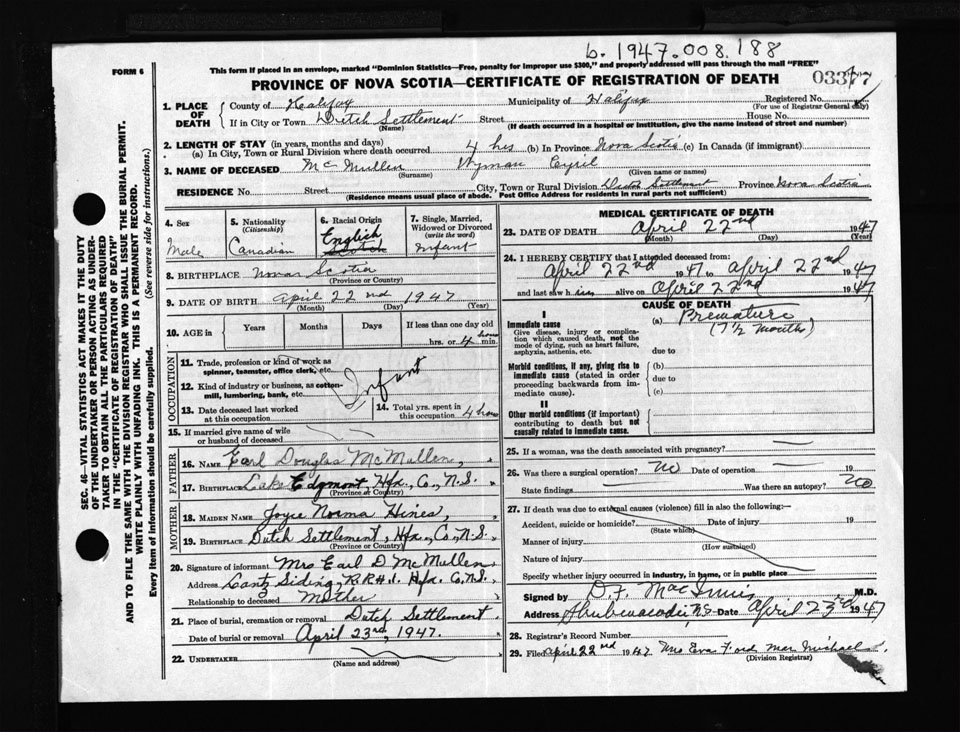 b. 1947.008.188
FORM 6
This form if placed in an envelope, marked "Dominion Statistics—Free, penalty for improper use $300," and properly addressed will pass through the mail "FREE"
PROVINCE OF NOVA SCOTIA—CERTIFICATE OF REGISTRATION OF DEATH
1. PLACE OF DEATH
County of Halifax Municipality of Halifax Registered No.
(For use of Registrar General only)
If in City or Town Dutch Settlement Street House No.
(Name) (If death occurred in a hospital or institution, give the name instead of street and number)
2. LENGTH OF STAY (in years, months and days)
(a) In City, Town or Rural Division where death occurred 4 hrs (b) In Province Nova Scotia (c) In Canada (if immigrant)
3. NAME OF DECEASED McMullen Wyman Cyril
(Surname) (Given name or names)
RESIDENCE No. Street City, Town or Rural Division Dutch Settlement Province Nova Scotia
(Residence means usual place of abode. Post Office Address for residents in rural parts not sufficient)
4. Sex
Male
5. Nationality
(Citizenship)
Canadian
6. Racial Origin
English
7. Single, Married, Widowed or Divorced
(write the word)
Infant
8. BIRTHPLACE Nova Scotia
(Province or Country)
9. DATE OF BIRTH April 22nd 1947
(Month) (Day) (Year)
10. AGE in
Years Months Days If less than one day old
hrs. or 4 hours min.
OCCUPATION
11. Trade, profession or kind of work as spinner, teamster, office clerk, etc.
12. Kind of industry or business, as cotton-mill, lumbering, bank, etc.
Infant
13. Date deceased last worked at this occupation
14. Total yrs. spent in this occupation 4 hours
15. If married give name of wife or husband of deceased
FATHER
16. NAME Earl Douglas McMullen,
17. BIRTHPLACE Lake Edgmont, Hfx., Co., N.S.
(Province or Country)
MOTHER
18. MAIDEN NAME Joyce Norma Hines,
19. BIRTHPLACE Dutch Settlement, Hfx., Co., N.S.
(Province or Country)
20. Signature of informant Mrs Earl D. McMullen
Address Lantz Siding, R.R.#1. Hfx. Co, N.S.
Relationship to deceased Mother
21. Place of burial, cremation or removal Dutch Settlement
Date of burial or removal April 23rd, 1947.
22. UNDERTAKER
(Name and address)
MEDICAL CERTIFICATE OF DEATH
23. DATE OF DEATH April 22nd 1947
(Month) (Day) (Year)
24. I HEREBY CERTIFY that I attended deceased from:
April 22nd 1947 to April 22nd 1947
and last saw him alive on April 22nd 1947
CAUSE OF DEATH
I
Immediate cause
Give disease, injury or complication which caused death, not the mode of dying, such as heart failure, asphyxia, asthenia, etc.
(a) Premature
(7½ months)
due to
Morbid conditions, if any, giving rise to immediate cause (stated in order proceeding backwards from immediate cause).
(b)
due to
(c)
II
Other morbid conditions (if important) contributing to death but not causally related to immediate cause.
25. If a woman, was the death associated with pregnancy?
26. Was there a surgical operation? No Date of operation 19
State findings Was there an autopsy? No
27. If death was due to external causes (violence) fill in also the following:—
Accident, suicide or homicide? Date of injury 19
(State which)
Manner of injury
(How sustained)
Nature of injury
Specify whether injury occurred in industry, in home, or in public place
Signed by D.F. MacInnis M.D.
Address Shubenacadie, N.S. Date April 23rd 1947
28. Registrar's Record Number
29. Filed April 22nd 1947 Mrs Eva Ford MacMichael
(Division Registrar)
SEC. 46—VITAL STATISTICS ACT MAKES IT THE DUTY
OF THE UNDERTAKER OR PERSON ACTING AS UNDER-
TAKER TO OBTAIN ALL THE PARTICULARS REQUIRED
IN THE "CERTIFICATE OF REGISTRATION OF DEATH"
AND TO FILE THE SAME WITH THE DIVISION REGISTRAR WHO SHALL ISSUE THE BURIAL PERMIT.
WRITE PLAINLY WITH UNFADING INK. THIS IS A PERMANENT RECORD.
Every item of information should be carefully supplied. (See reverse side for instructions.)